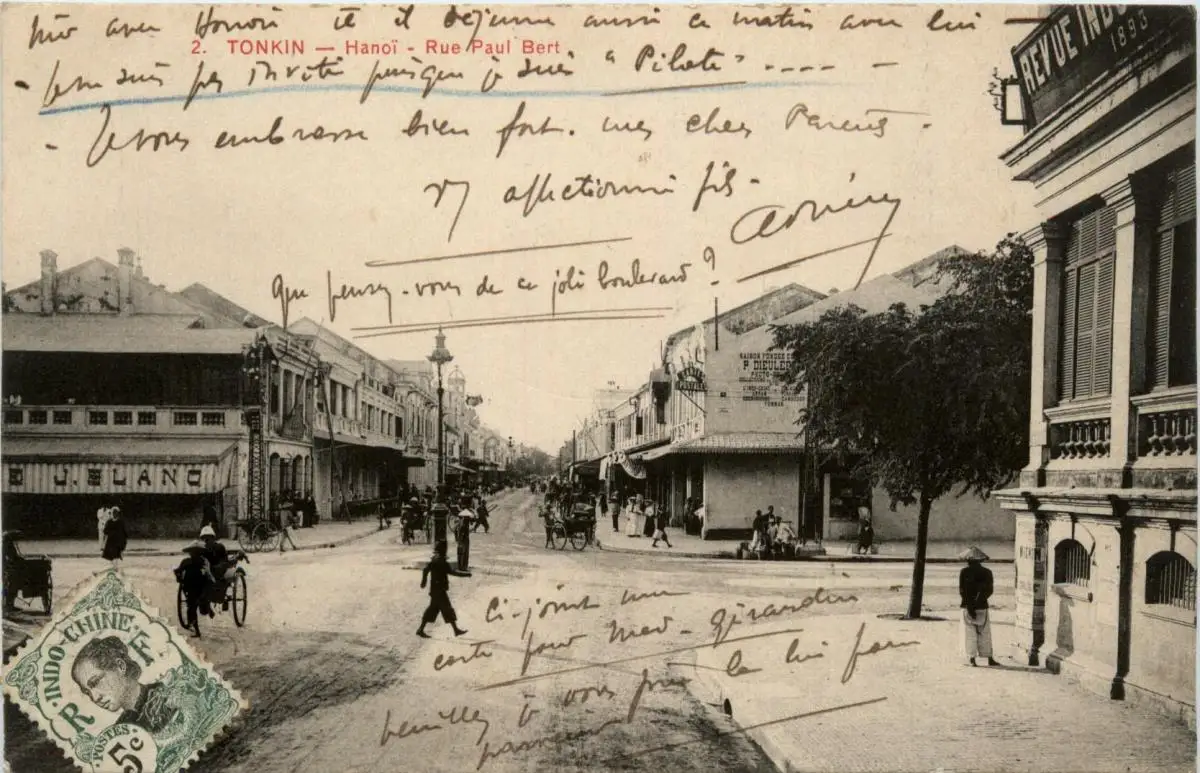 hier avec Honoré et il déjeune aussi ce matin avec lui
2. TONKIN — Hanoï - Rue Paul Bert
- Je ne suis pas invité puisque je suis "Pilote" .... -
- Je vous embrasse bien fort. mes chers Parents -
affectionné fils -
Que pensez-vous de ce joli boulevard ?
REVUE INDO
1893
MAISON FONDÉE
P. DIEULEF
PHOTO
TONKIN
J. BLANC
Ci-joint une
carte pour Mad- Girardin
veuillez je vous prie la lui faire
parvenir
INDO-CHINE
RF
POSTES 5c